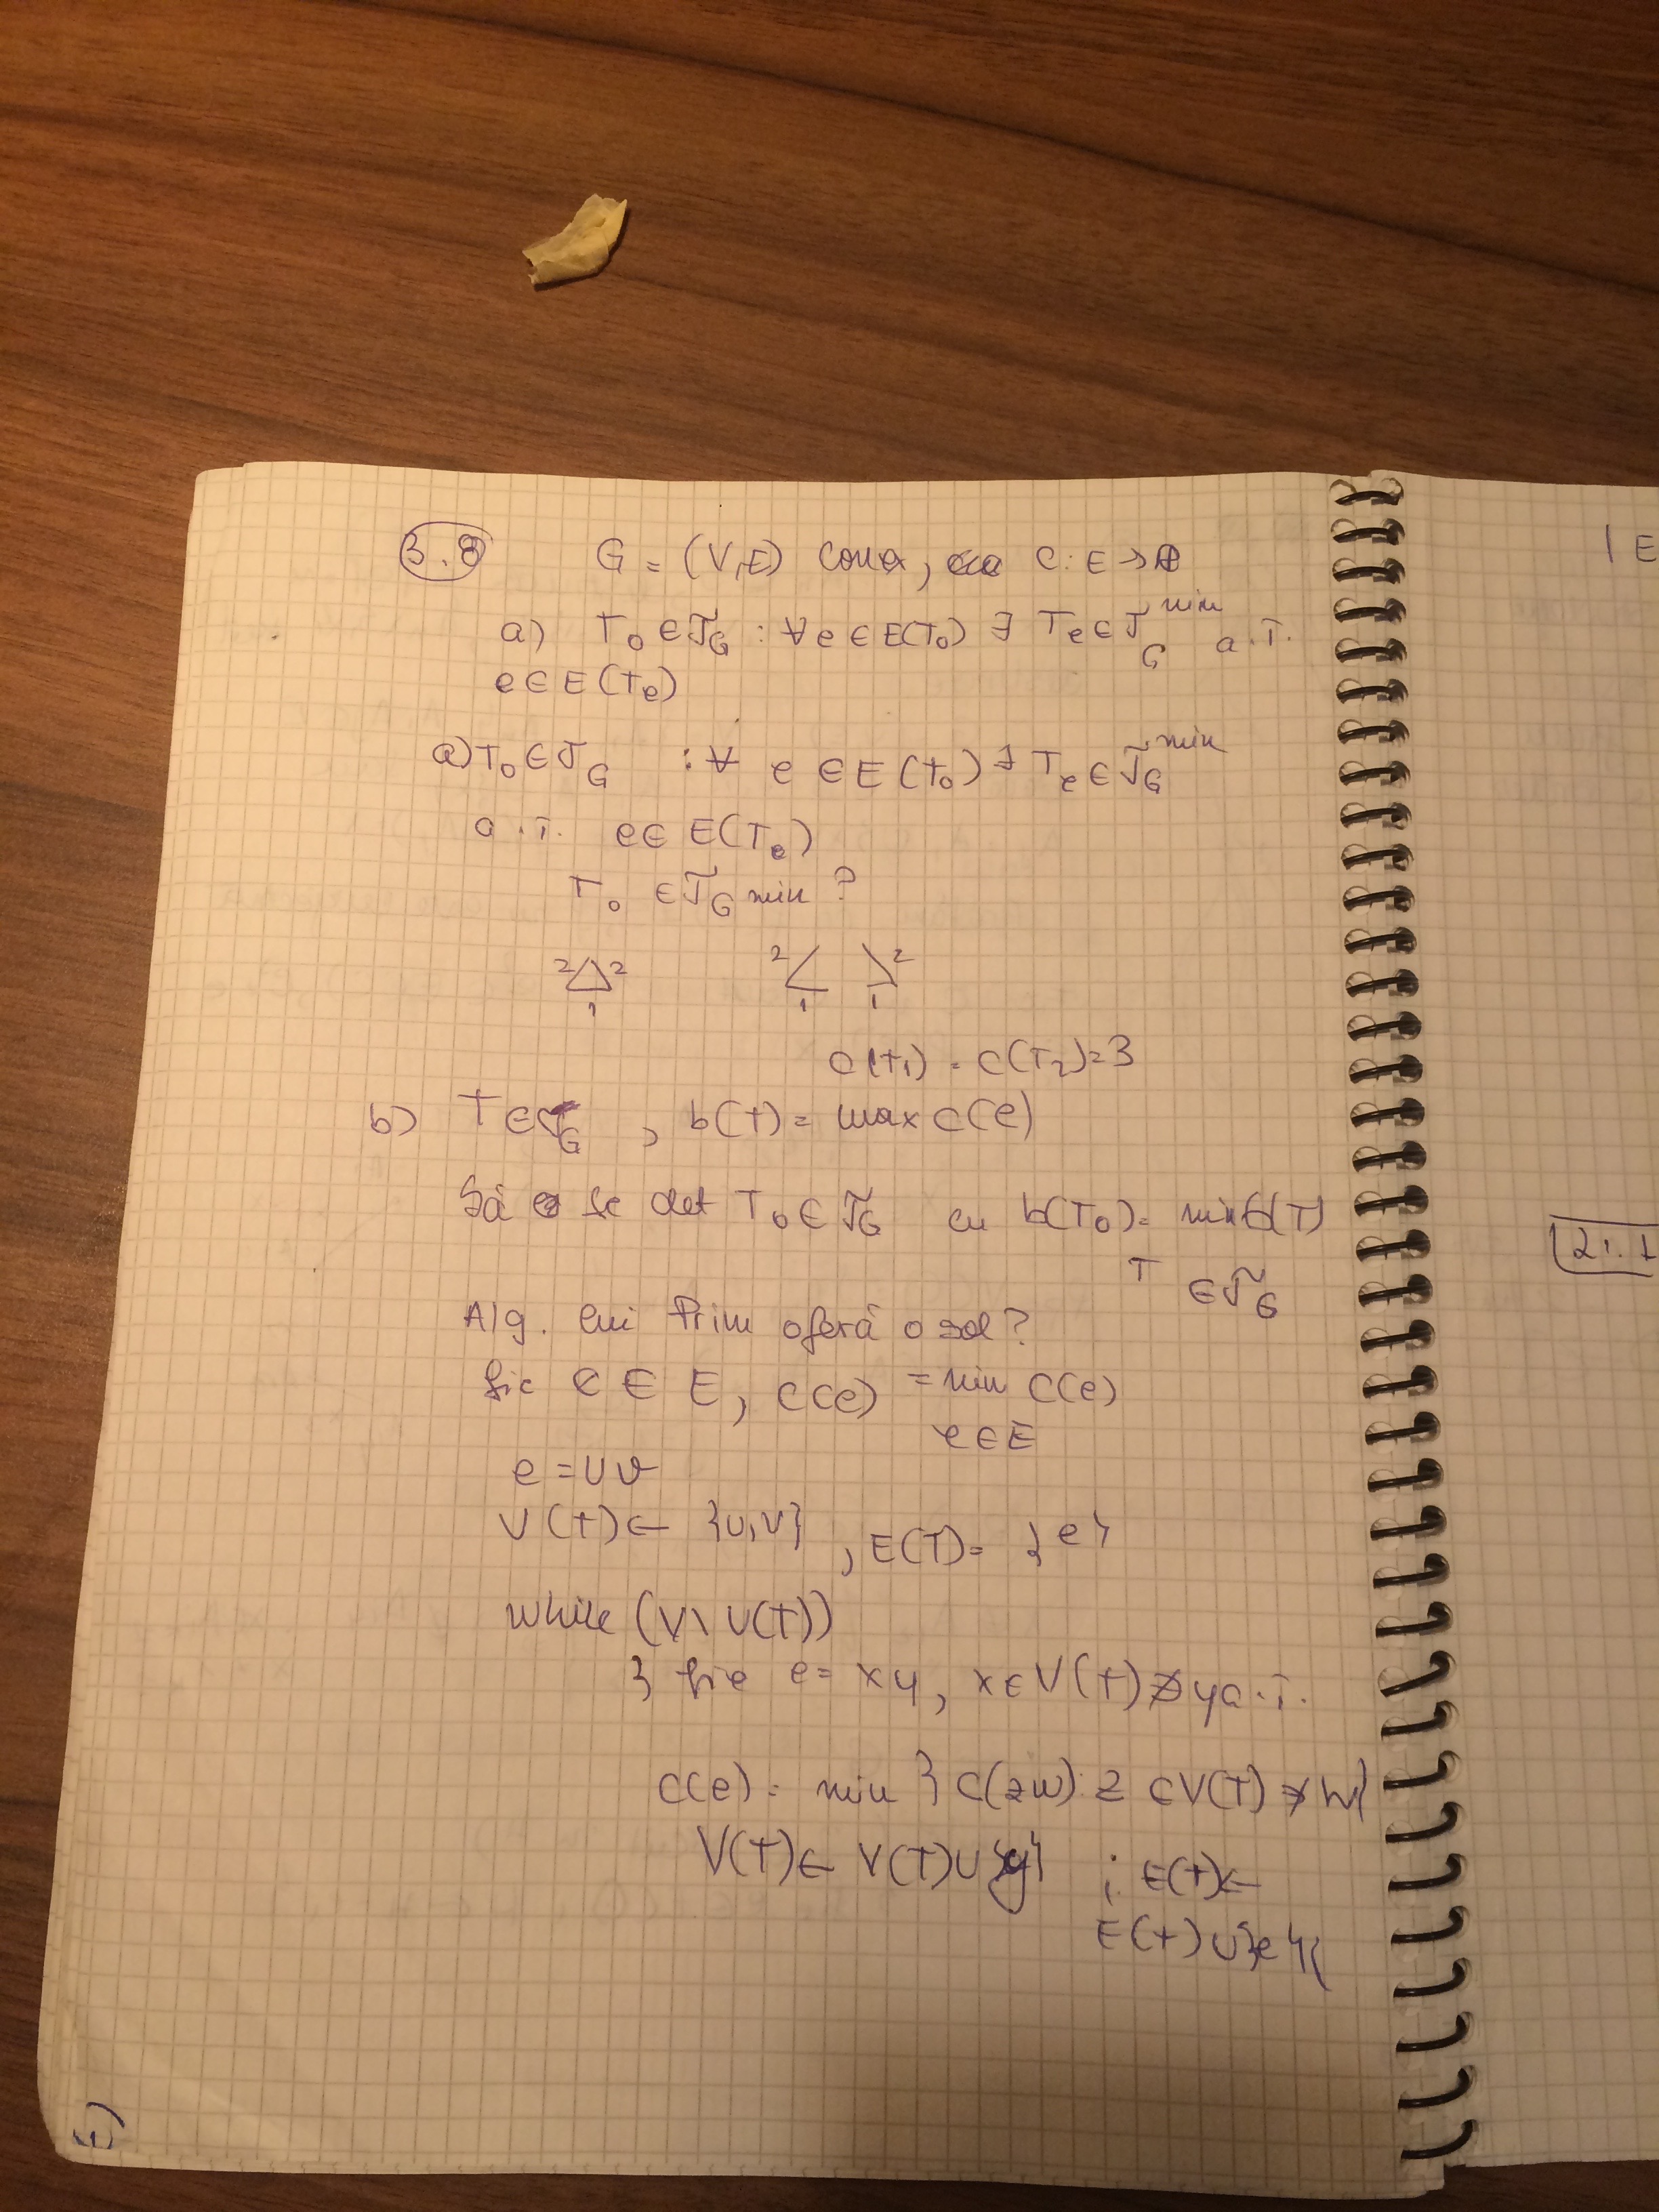 3.8 G = (V,E) conex, c: E → ℝ
a) T₀ ∈ 𝒯_G : ∀ e ∈ E(T₀) ∃ Tₑ ∈ 𝒯_G^min a.î.
e ∈ E(Tₑ)
a) T₀ ∈ 𝒯_G : ∀ e ∈ E(t₀) ∃ Tₑ ∈ 𝒯_G^min
a.î. e ∈ E(Tₑ)
T₀ ∈ 𝒯_G min ?
2 2 2 2
1 1 1
c(t₁) = c(T₂) = 3
b) T ∈ 𝒯_G , b(t) = max c(e)
Să se det T₀ ∈ 𝒯_G cu b(T₀) = min b(T)
T ∈ 𝒯_G
Alg. lui Prim oferă o sol?
fie e ∈ E, c(e) = min c(e)
e ∈ E
e = uv
V(t) ← {u,v} , E(T) = {e}
while (V \ V(T))
{ fie e = xy, x ∈ V(t) ∌ y a.î.
c(e) = min { c(zw): z ∈ V(T) ∌ w}
V(T) ← V(T) ∪ {y} ; E(t) ←
E(t) ∪ {e}}
| E
21.1